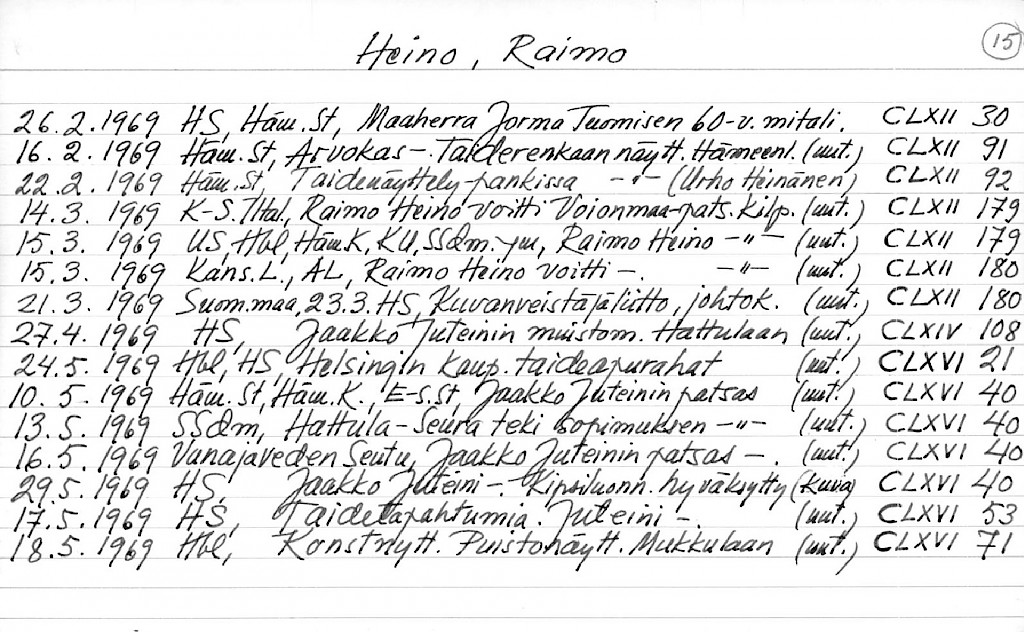 Heino, Raimo
15
26.2.1969 HS, Häm.St, Maaherra Jorma Tuomisen 60-v. mitali. CLXII 30
16.2.1969 Häm.St, Arvokas -. Taiderenkaan näytt. Hämeenl. (uut.) CLXII 91
22.2.1969 Häm.St, Taidenäyttely pankissa -"- (Urho Heinänen) CLXII 92
14.3.1969 K-S.Ital, Raimo Heino voitti Voionmaa-pats. kilp. (uut.) CLXII 179
15.3.1969 US, Hbl, Häm.K, KU, SSdm. ym, Raimo Heino -"- (uut.) CLXII 179
15.3.1969 Kans.L., AL, Raimo Heino voitti -. -"- (uut.) CLXII 180
21.3.1969 Suom.maa, 23.3. HS, Kuvanveistäjäliitto, johtok. (uut.) CLXII 180
27.4.1969 HS, Jaakko Juteinin muistom. Hattulaan (uut.) CLXIV 108
24.5.1969 Hbl, HS, Helsingin kaup. taideapurahat (uut.) CLXVI 21
10.5.1969 Häm.St, Häm.K., E-S.St, Jaakko Juteinin patsas (uut.) CLXVI 40
13.5.1969 SSdm, Hattula-Seura teki sopimuksen -"- (uut.) CLXVI 40
16.5.1969 Vanajaveden Seutu, Jaakko Juteinin patsas -. (uut.) CLXVI 40
29.5.1969 HS, Jaakko Juteini -. Kipsiluonn. hyväksytty (kuva) CLXVI 40
17.5.1969 HS, Taidetapahtumia. Juteini -. (uut.) CLXVI 53
18.5.1969 Hbl, Konstnytt. Puistonäytt. Mukkulaan (uut.) CLXVI 71